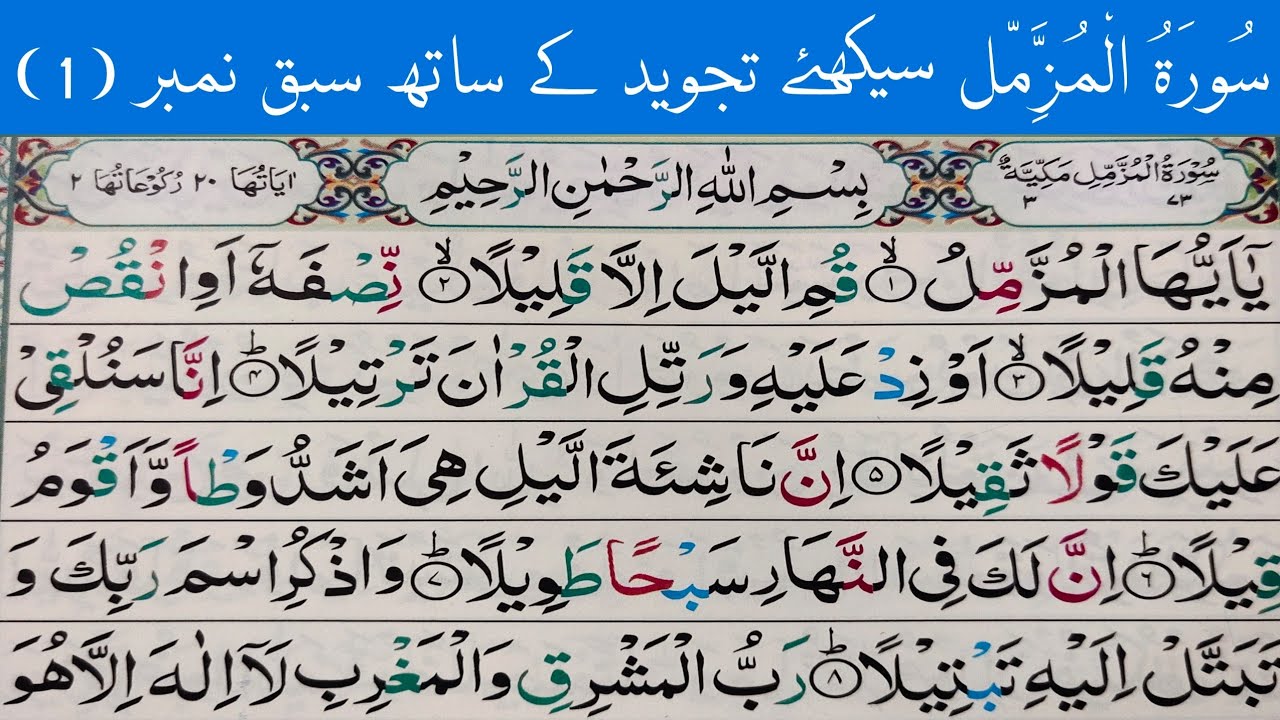 سُورَۃُ الْمُزَّمِّل سیکھئے تجوید کے ساتھ سبق نمبر (1)
سُوْرَةُ الْمُزَّمِّلِ مَكِّيَّةٌ ٣ ٧٣
بِسْمِ اللهِ الرَّحْمٰنِ الرَّحِيْمِ
اٰيَاتُهَا ٢٠ رُكُوْعَاتُهَا ٢
يٰۤاَيُّهَا الْمُزَّمِّلُ ۙ﴿١﴾ قُمِ الَّيْلَ اِلَّا قَلِيْلًا ۙ﴿٢﴾ نِّصْفَهٗۤ اَوِ انْقُصْ
مِنْهُ قَلِيْلًا ۙ﴿٣﴾ اَوْ زِدْ عَلَيْهِ وَرَتِّلِ الْقُرْاٰنَ تَرْتِيْلًا ؕ﴿٤﴾ اِنَّا سَنُلْقِيْ
عَلَيْكَ قَوْلًا ثَقِيْلًا ﴿٥﴾ اِنَّ نَاشِئَةَ الَّيْلِ هِيَ اَشَدُّ وَطْاً وَّاَقْوَمُ
قِيْلًا ؕ﴿٦﴾ اِنَّ لَكَ فِي النَّهَارِ سَبْحًا طَوِيْلًا ؕ﴿٧﴾ وَاذْكُرِ اسْمَ رَبِّكَ وَ
تَبَتَّلْ اِلَيْهِ تَبْتِيْلًا ؕ﴿٨﴾ رَبُّ الْمَشْرِقِ وَالْمَغْرِبِ لَاۤ اِلٰهَ اِلَّا هُوَ